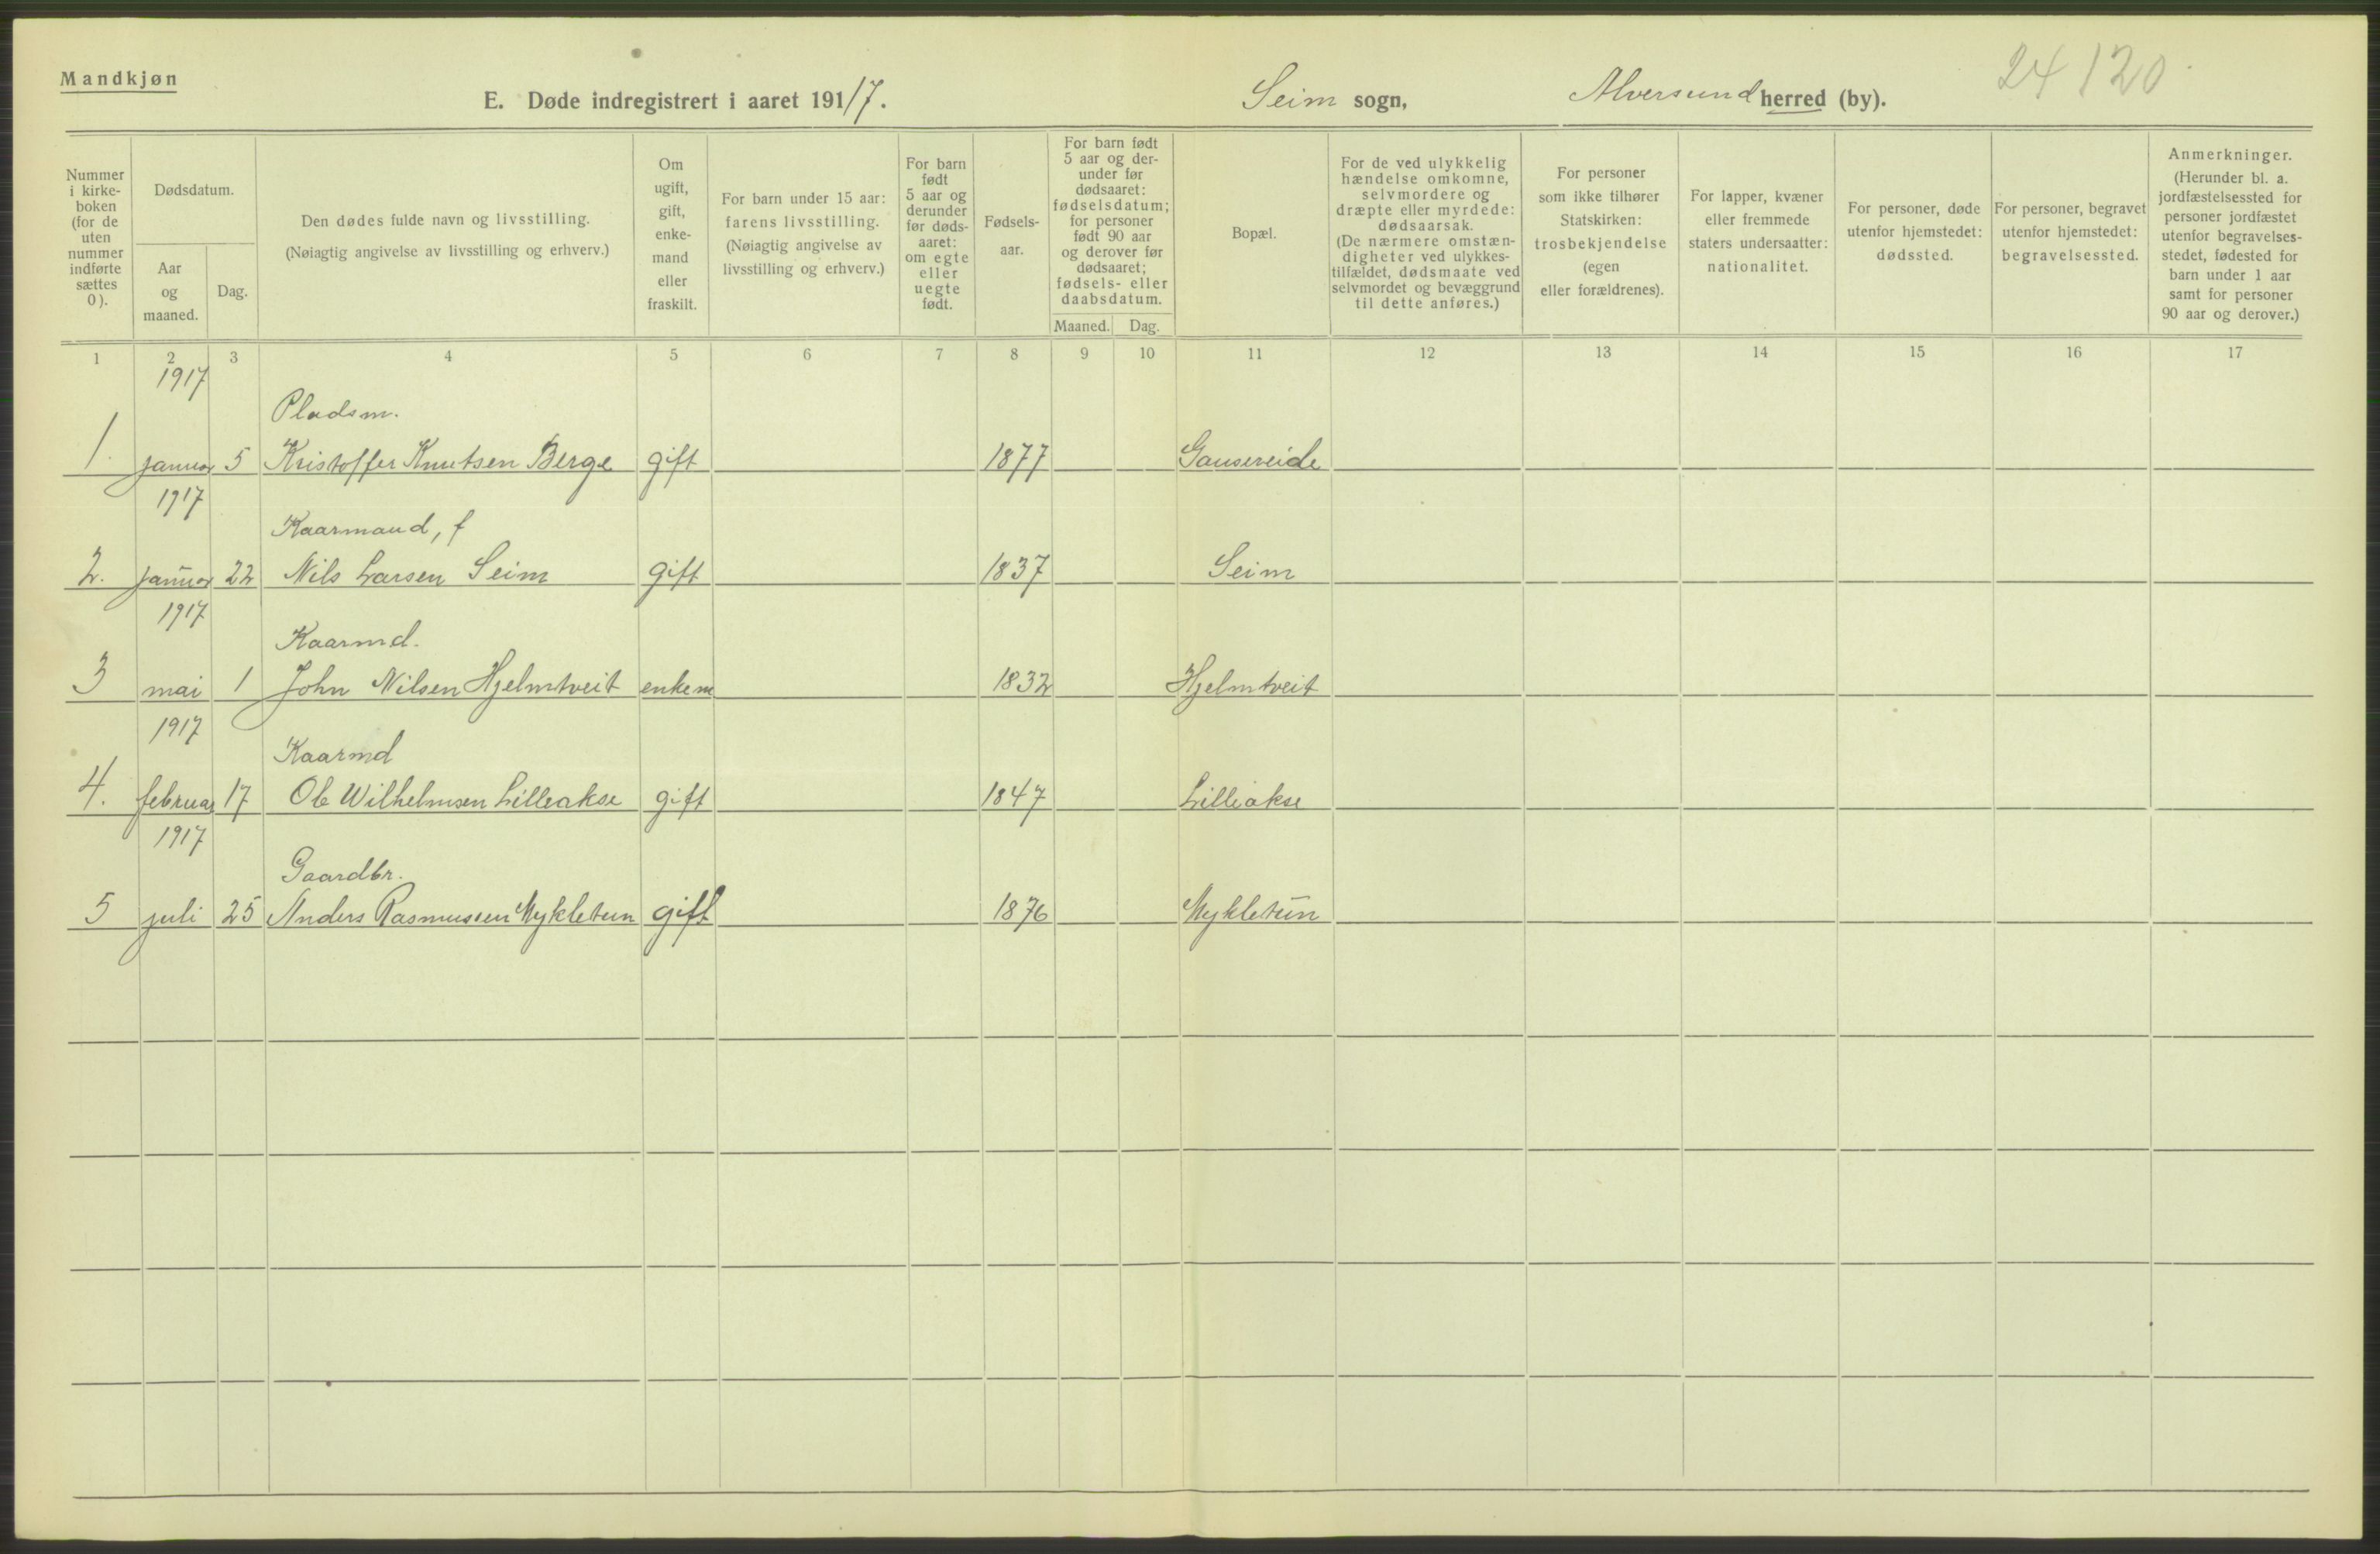 Mandkjøn
E. Døde indregistrert i aaret 1917. Seim sogn, Alversund herred (by). 24 120
Nummer i kirke-boken (for de uten nummer indførte sættes 0).
Dødsdatum.
Aar og maaned.
Dag.
Den dødes fulde navn og livsstilling.
(Nøiagtig angivelse av livsstilling og erhverv.)
Om ugift, gift, enke-mand eller fraskilt.
For barn under 15 aar: farens livsstilling. (Nøiagtig angivelse av livsstilling og erhverv.)
For barn født 5 aar og derunder før døds-aaret: om egte eller uegte født.
Fødsels-aar.
For barn født 5 aar og der-under før dødsaaret: fødselsdatum; for personer født 90 aar og derover før dødsaaret; fødsels- eller daabsdatum.
Maaned. Dag.
Bopæl.
For de ved ulykkelig hændelse omkomne, selvmordere og dræpte eller myrdede: dødsaarsak. (De nærmere omstæn-digheter ved ulykkes-tilfældet, dødsmaate ved selvmordet og bevæggrund til dette anføres.)
For personer som ikke tilhører Statskirken: trosbekjendelse (egen eller forældrenes).
For lapper, kvæner eller fremmede staters undersaatter: nationalitet.
For personer, døde utenfor hjemstedet: dødssted.
For personer, begravet utenfor hjemstedet: begravelsessted.
Anmerkninger. (Herunder bl. a. jordfæstelsessted for personer jordfæstet utenfor begravelses-stedet, fødested for barn under 1 aar samt for personer 90 aar og derover.)
1 2 3 4 5 6 7 8 9 10 11 12 13 14 15 16 17
1917
Pladsm.
1. januar 5 Kristoffer Knutsen Berge gift 1877 Gausereide
1917
Kaarmand, f
2. januar 22 Nils Larsen Seim gift 1837 Seim
1917
Kaarmd.
3 mai 1 John Nilsen Hjelmtveit enkem 1832 Hjelmtveit
1917
Kaarmd
4. februar 17 Ole Wilhelmsen Lilleakse gift 1847 Lilleakse
1917
Gaardbr.
5 juli 25 Anders Rasmussen Mykletun gift 1876 Mykletun